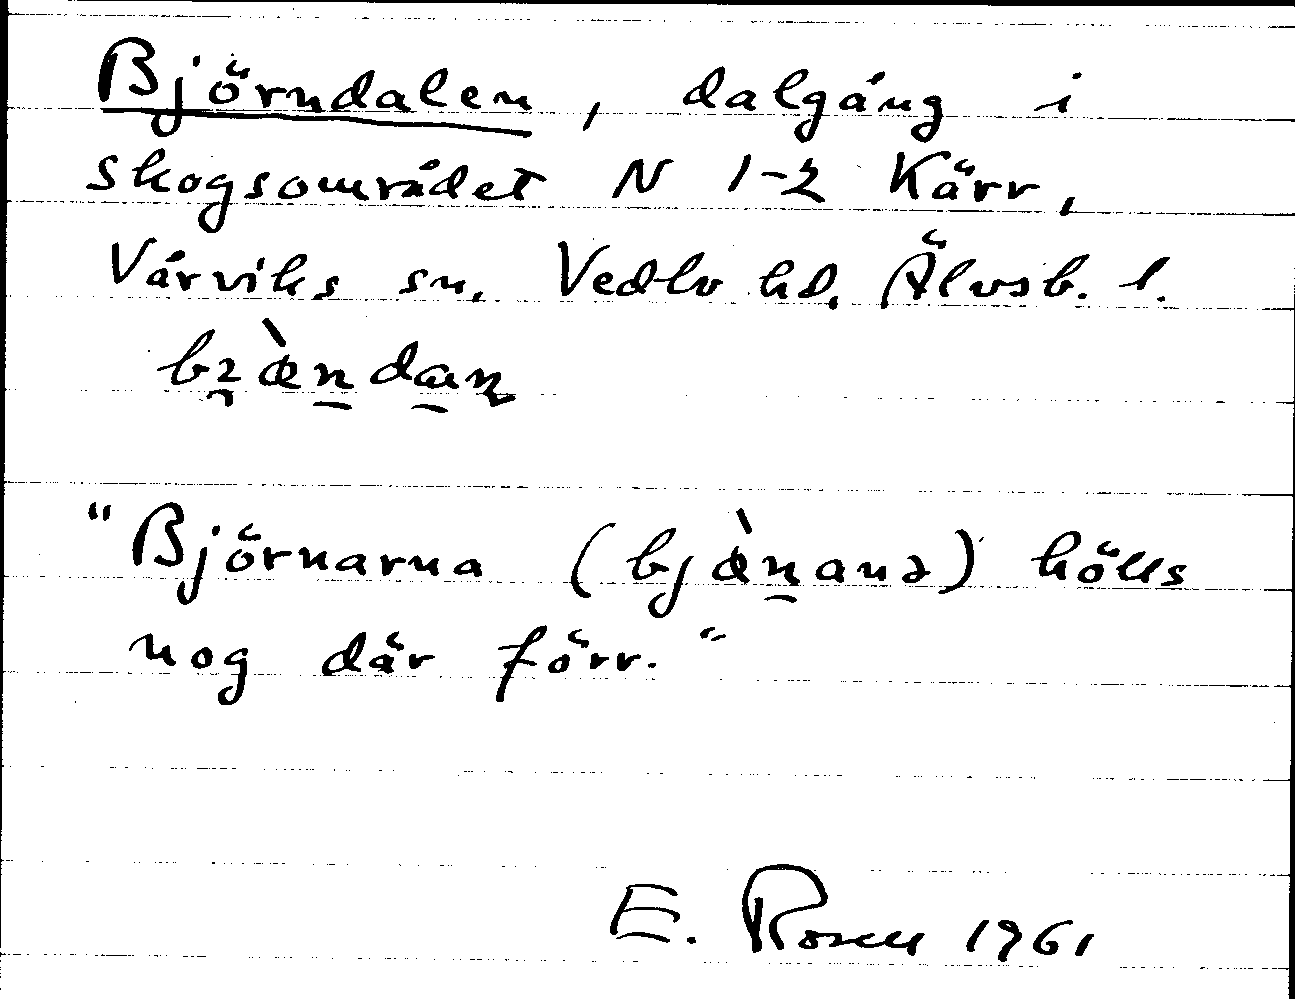 Björndalen, dalgång i
skogsområdet N 1-2 Kärr,
Vårviks sn, Vedbo hd, Älvsb. l.
"Björnarna (bjæ̀nana) hölls
nog där förr."
E. Rosell 1961